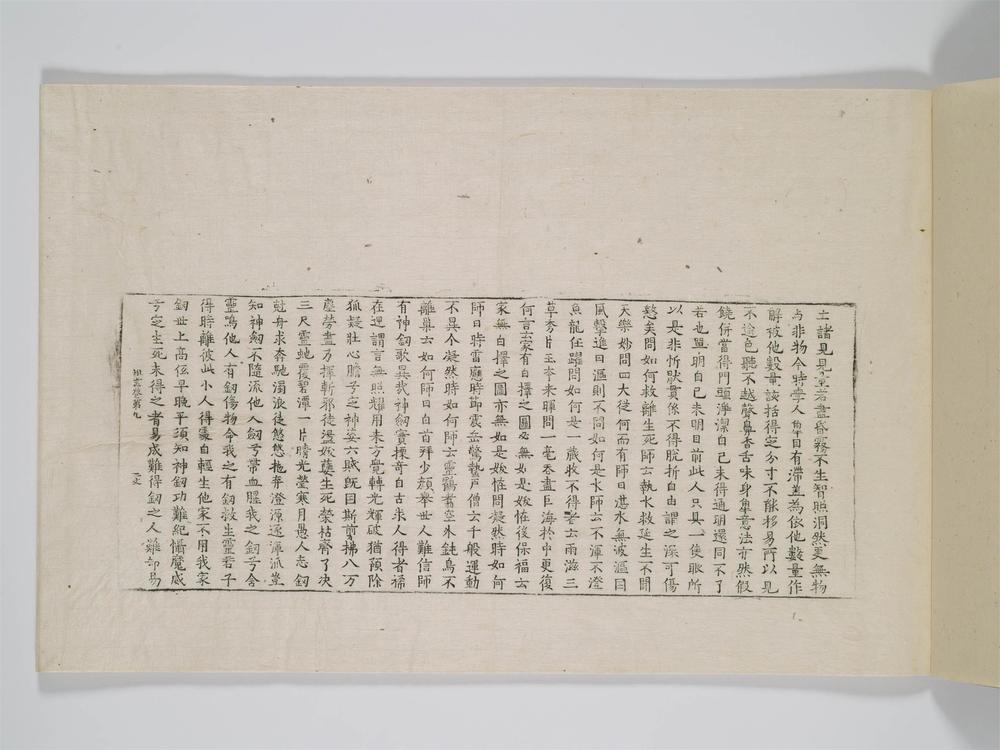 士諸見見量若盡昏霧不生智照洞然更無物
与非物今時學人觸目有滯盖為依他數量作
解被他數量該括得定分寸不能移易所以見
不逾色聽不越聲鼻香舌味身觸意法亦然假
饒併當得門頭淨潔自己未得通明還同不了
若也單明自己未明目前此人只具一隻眼所
以是非忻猒貫係不得脱折自由謂之深可傷
愍矣問如何救離生死師云執水救延生不聞
天樂妙問四大從何而有師曰湛水無波漚因
風擊進曰漚則不問如何是水師云不渾不澄
魚龍任躍問如何是一藏收不得者云雨滋三
草秀片玉本來暉問一毫吞盡巨海於中更復
何言云家有白擇之圖必無如是妖恠後保福云
家無白擇之圖亦無如是妖恠問凝然時如何
師曰時雷應時節震岳驚蟄戸僧云千般運動
不異今凝然時如何師云靈鶴翥空外鈍鳥不
離巢云如何師曰白首拜少顔舉世人難信師
有神劔歌異哉神劔實摽奇自古求人得者稀
在匣謂言無照耀用來方覺轉光輝破猶預除
狐疑壯心膽兮定神姿六賊既因斯剪拂八万
塵勞盡乃揮斬邪徒盪妖孽生死榮枯齊了决
三尺靈虵覆碧潭一片晴光瑩寒月愚人忘劔
尅舟求奔馳濁浪徒悠悠抛弃澄源逐渾派豈
知神劔不隨流他人劔兮帶血腥我之劔兮含
靈鳴他人有劔傷物命我之有劔救生靈君子
得時離彼此小人得處自輕生他家不用我家
劔世上高低早晚平須知神劔功難紀懾魔威
兮定生死未得之者易成難得劔之人難却易
祖堂集第九